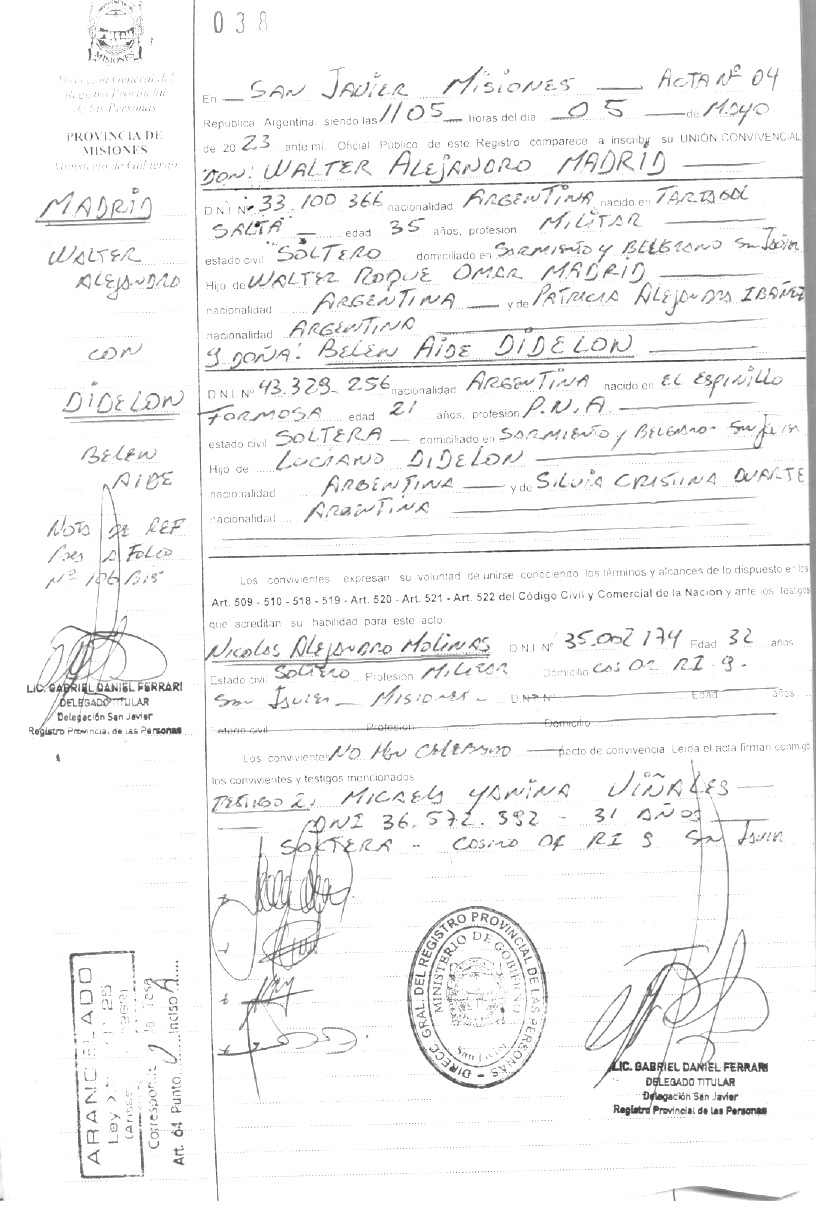 038
MISIONES
Dirección General del
Registro Provincial
de las Personas
PROVINCIA DE
MISIONES
Ministerio de Gobierno
MADRID
WALTER
ALEJANDRO
CON
DIDELON
BELEN
AIDE
NOTA DE REF
A FOLIO
Nº 106 BIS
LIC. GABRIEL DANIEL FERRARI
DELEGADO TITULAR
Delegación San Javier
Registro Provincial de las Personas
En SAN JAVIER MISIONES ACTA Nº 04
Republica Argentina, siendo las 1105 horas del día 05 de MAYO
de 2023 ante mi, Oficial Público de este Registro comparece a inscribir su UNIÓN CONVIVENCIAL
DON: WALTER ALEJANDRO MADRID
D.N.I. Nº 33.100.366 nacionalidad ARGENTINA nacido en TARTAGAL
SALTA edad 35 años, profesión MILITAR
estado civil SOLTERO domiciliado en SARMIENTO Y BELGRANO San Javier
Hijo de WALTER ROQUE OMAR MADRID
nacionalidad ARGENTINA y de PATRICIA ALEJANDRA IBAÑEZ
nacionalidad ARGENTINA
Y DOÑA: BELEN AIDE DIDELON
D.N.I. Nº 43.329.256 nacionalidad ARGENTINA nacido en EL ESPINILLO
FORMOSA edad 21 años, profesión P.N.A.
estado civil SOLTERA domiciliado en SARMIENTO Y BELGRANO - San Javier
Hijo de LUCIANO DIDELON
nacionalidad ARGENTINA y de SILVIA CRISTINA DUARTE
nacionalidad ARGENTINA
Los convivientes expresan su voluntad de unirse conociendo los términos y alcances de lo dispuesto en los
Art. 509 - 510 - 518 - 519 - Art. 520 - Art. 521 - Art. 522 del Código Civil y Comercial de la Nación y ante los testigos
que acreditan su habilidad para este acto.
NICOLAS ALEJANDRO MOLINAS D.N.I. Nº 35.002.174 Edad 32 años
Estado civil SOLTERO Profesión MILITAR Domicilio COSOR RI 9-
San Javier - MISIONES - D.N.I. Nº Edad años
Estado civil Profesión Domicilio
Los convivientes NO HAN CELEBRADO pacto de convivencia. Leída el acta firman conmigo
los convivientes y testigos mencionados
TESTIGO 2: MICAELA YANINA VIÑALES
DNI 36.572.392 - 31 AÑOS
SOLTERA - RI 9 San Javier
DIRECC. GRAL. DEL REGISTRO PROVINCIAL DE LAS PERSONAS
MINISTERIO DE GOBIERNO
San Javier
LIC. GABRIEL DANIEL FERRARI
DELEGADO TITULAR
Delegación San Javier
Registro Provincial de las Personas
ARANCELADO
Ley
Corresponde a la Tasa
Art. 64 Punto Inciso A